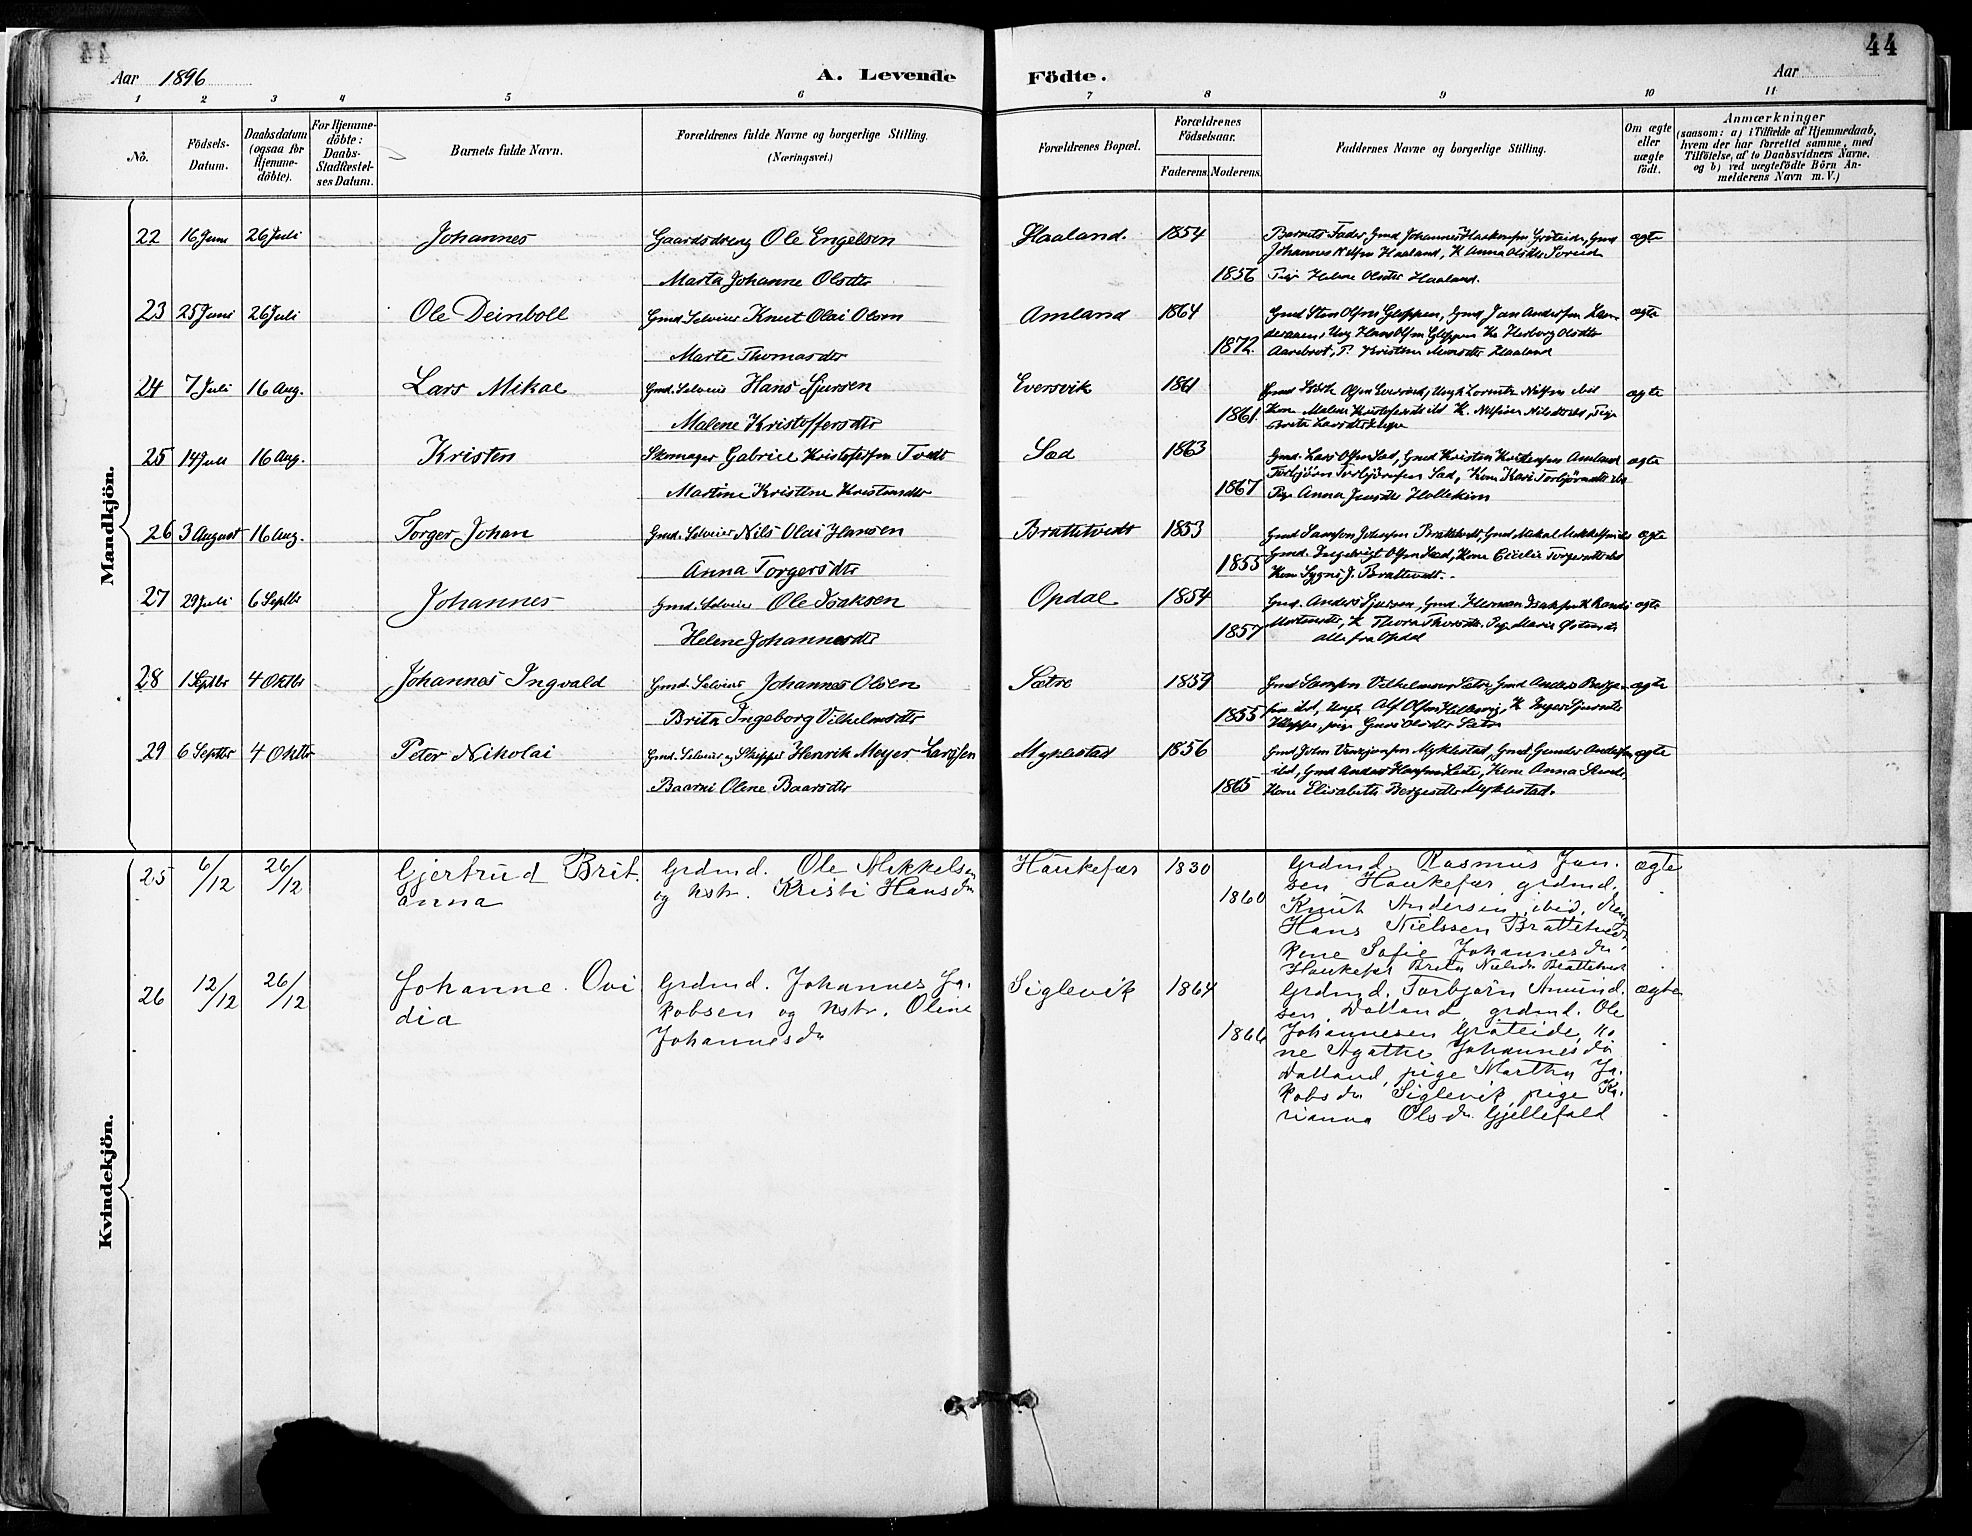 44
Aar 1896
A. Levende Födte.
Aar
1 2 3 4 5 6 7 8 9 10 11
No.
Födsels-Datum.
Daabsdatum (ogsaa for Hjemme-döbte).
For Hjemme-döbte: Daabs-Stadfæstel-ses Datum.
Barnets fulde Navn.
Forældrenes fulde Navne og borgerlige Stilling. (Næringsvei.)
Forældrenes Bopæl.
Forældrenes Födselsaar.
Faderens. Moderens.
Faddernes Navne og borgerlige Stilling.
Om ægte eller uægte födt.
Anmærkninger
(saasom: a) i Tilfælde af Hjemmedaab,
hvem der har forrettet samme, med
Tilföielse, af to Daabsvidners Navne,
og b) ved uægtefödte Börn An-
melderens Navn m. V.)
Mandkjön.
22 16 Juni 26 Juli Johannes Gaardsdreng Ole Engelsen Haaland. 1854 Barnets Fader, Gmd Johannes Haakonsen Gröteide, Gmd ægte
Johannes Haaland, K Anna Olsdtr
Marta Johanne Olsdtr 1856 Pige Helene Olsdtr Haaland.
23 25 Juni 26 Juli Ole Deinboll Gmd Selveier Knut Olai Olsen Amland 1864 Gmd Sten Olsen Gleppen, Gmd Jan Andersen ægte
Hans Olsen Gleppen Ke Herborg Olsdtr
Marte Thomasdtr 1872. Aarebrot, P. Kristine Haaland
24 7 Juli 16 Aug. Lars Mikal Gmd. Selveier Hans Sjursen Eversvik 1861 Gmd Olsen ægte
Malene Kristoffersdtr 1861. Kone Malene
Brita Larsdtr
25 14 Juli 16 Aug. Kristen Skomager Gabriel Kristofersen Tvedt Sæd 1863 Gmd. Lars Olsen Sæd, Gmd Kristen Amland ægte
Torbjörn Torbjörnsen Sæd, Kone Kari Torbjörnsdtr
Martine Kristine Kristensdtr 1867 Pige Anna
26 3 August 16 Aug. Torger Johan Gmd. Selveier Nils Olai Hansen Brattetvedt 1853 Gmd Samson Johnsen Brattetvedt, Gmd Mikal ægte
Anna Torgersdtr 1855 Gmd. Olsen Sæd, Kone Cecilie Torgersdtr
Kone J. Brattetvedt.
27 29 Juli 6 Septbr Johannes Gmd. Selveier Ole Isaksen Opdal 1854 Gmd. Anders Sjursen, Gmd. Herman Isaksen K Randi ægte
Helene Johannesdtr 1857 Mortensdtr, K Thora Pige Marie
alle fra Opdal
28 1 Septbr 4 Oktbr Johannes Ingvald Gmd. Selveier Johannes Olsen Sætre 1859 Gmd Samson Vilhelmsen Sætre, Gmd Anders ægte
Brita Ingeborg Vilhelmsdtr 1855 ibd, Ungk. Alf Olsen K Inger Sjursdtr
pige Guri Olsdtr Sætre
29 6 Septbr 4 Oktbr Peter Nikolai Gmd. Selveier og Skipper Henrik Meyer Larssen Myklestad 1856 Gmd John Myklestad, Gmd. Gunder Andersen ægte
ibd, Gmd Anders Hansen Kone Anna
Baarni Olene Baarsdtr 1865 Kone Elisabeth Børgesdtr Myklestad.
Kvindekjön.
25 6/12 26/12 Gjertrud Brit. Grdmd. Ole Mikkelsen Haukefær 1830 Grdmd. Rasmus Jan. ægte
anna og hstr. Kristi Hansdtr 1860 sen Haukefær, grdmd.
Knut Andersen ibid, dreng
Hans Nielssen Brattetvedt
kone Sofie Johannesdtr
Haukefær Brita Nielsdtr Brattetvedt
26 12/12 26/12 Johanne Ovi Grdmd. Johannes Ja. Siglevik 1864 Grdmd. Torbjørn Amund. ægte
dia kobsen og hstr. Oline sen Dalland, grdmd. Ole
Johannesdtr 1866 Johannesen Gröteide, ko
ne Agathe Johannesdtr
Dalland, pige Martha Ja.
kobsdtr Siglevik, pige Ka.
rianna Olsdtr Gjellefald